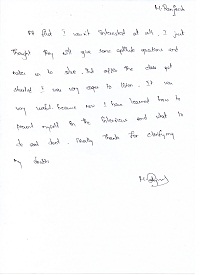 M. Ranjith
At first I wasn't interested at all. I just
thought they will give some aptitude questions and
makes us to solve. But after the class got
started I was very eager to listen. It was
very useful because now I have learned how to
present myself in the interviews and what to
do and don't. Really thanks for clarifying
my doubts